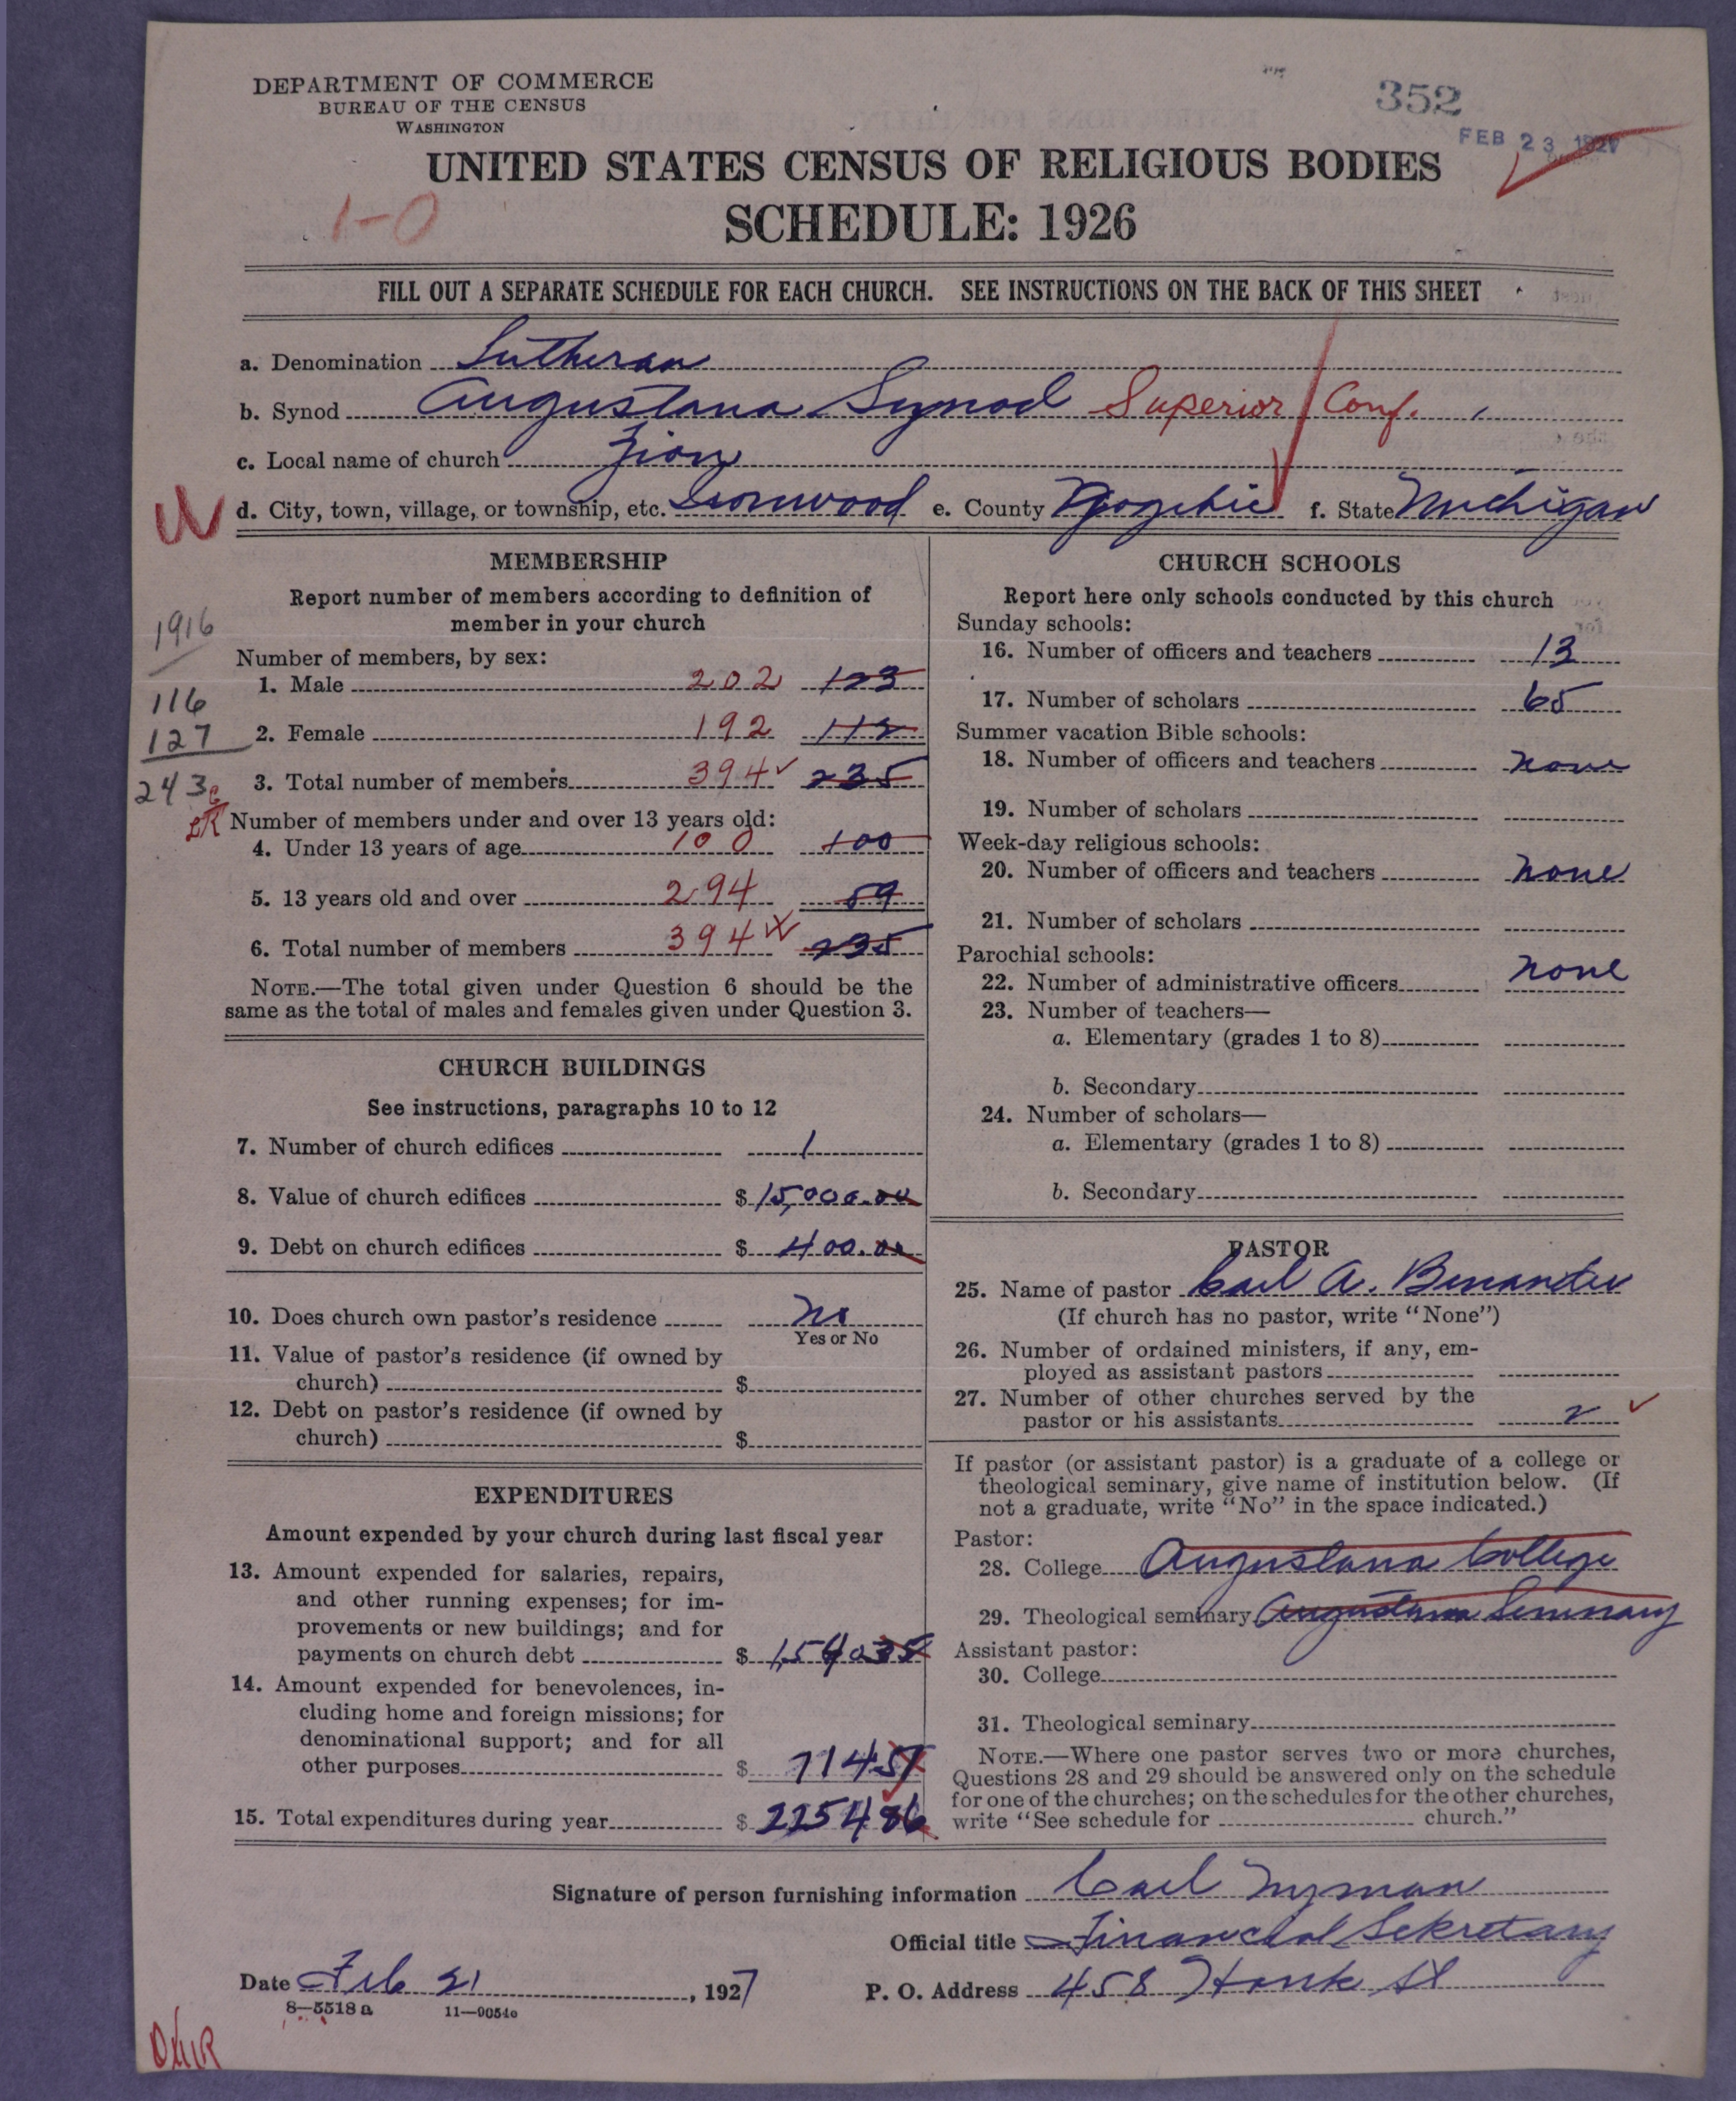 352
FEB 23 1927
DEPARTMENT OF COMMERCE
BUREAU OF THE CENSUS
WASHINGTON
UNITED STATES CENSUS OF RELIGIOUS BODIES
1-0
SCHEDULE: 1926
FILL OUT A SEPARATE SCHEDULE FOR EACH CHURCH. SEE INSTRUCTIONS ON THE BACK OF THIS SHEET
a. Denomination Lutheran
b. Synod Augustana Synod Superior Conf.
c. Local name of church Zion
W d. City, town, village, or township, etc. Ironwood e. County Gogebic f. State Michigan
MEMBERSHIP
Report number of members according to definition of
member in your church
1916
Number of members, by sex:
1. Male 202 123
116
127 2. Female 192 112
243 3. Total number of members 394 235
Number of members under and over 13 years old:
4. Under 13 years of age 100 100
5. 13 years old and over 294 59
6. Total number of members 394 235
NOTE.—The total given under Question 6 should be the
same as the total of males and females given under Question 3.
CHURCH BUILDINGS
See instructions, paragraphs 10 to 12
7. Number of church edifices 1
8. Value of church edifices $ 15,000.00
9. Debt on church edifices $ 400.00
10. Does church own pastor's residence No
Yes or No
11. Value of pastor's residence (if owned by
church) $
12. Debt on pastor's residence (if owned by
church) $
EXPENDITURES
Amount expended by your church during last fiscal year
13. Amount expended for salaries, repairs,
and other running expenses; for im-
provements or new buildings; and for
payments on church debt $ 1,54035
14. Amount expended for benevolences, in-
cluding home and foreign missions; for
denominational support; and for all
other purposes $ 71451
15. Total expenditures during year $ 225486
CHURCH SCHOOLS
Report here only schools conducted by this church
Sunday schools:
16. Number of officers and teachers 13
17. Number of scholars 65
Summer vacation Bible schools:
18. Number of officers and teachers none
19. Number of scholars
Week-day religious schools:
20. Number of officers and teachers none
21. Number of scholars
Parochial schools:
22. Number of administrative officers none
23. Number of teachers—
a. Elementary (grades 1 to 8)
b. Secondary
24. Number of scholars—
a. Elementary (grades 1 to 8)
b. Secondary
PASTOR
25. Name of pastor Carl A. Benander
(If church has no pastor, write "None")
26. Number of ordained ministers, if any, em-
ployed as assistant pastors
27. Number of other churches served by the
pastor or his assistants 2
If pastor (or assistant pastor) is a graduate of a college or
theological seminary, give name of institution below. (If
not a graduate, write "No" in the space indicated.)
Pastor:
28. College Augustana College
29. Theological seminary Augustana Seminary
Assistant pastor:
30. College
31. Theological seminary
NOTE.—Where one pastor serves two or more churches,
Questions 28 and 29 should be answered only on the schedule
for one of the churches; on the schedules for the other churches,
write "See schedule for church."
Signature of person furnishing information Carl Nyman
Official title Financial Sekretary
Date Feb 21, 1927 P. O. Address 458 Houk St
8—5518 a 11—9054e